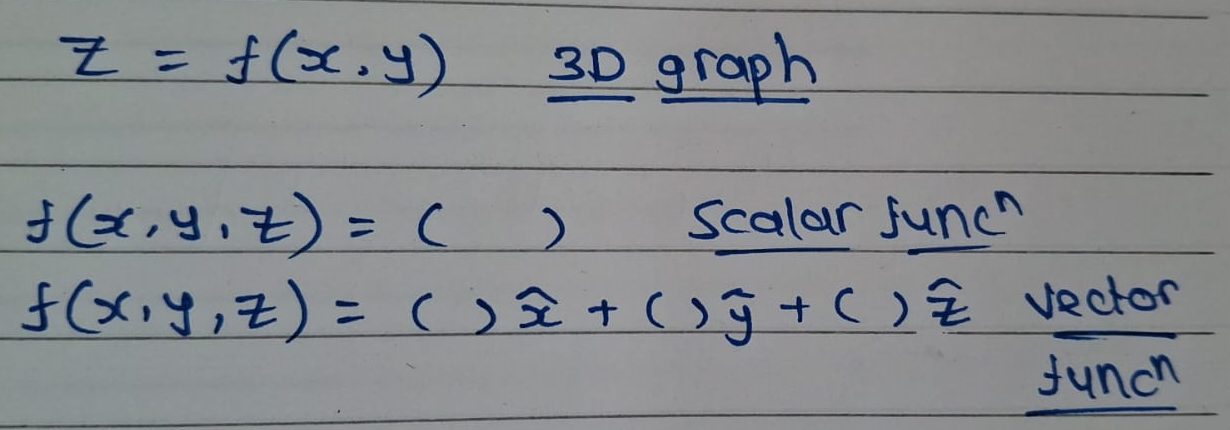 z = f(x,y) 3D graph
f(x,y,z) = ( ) scalar funcⁿ
f(x,y,z) = ( ) x̂ + ( ) ŷ + ( ) ẑ vector
funcⁿ